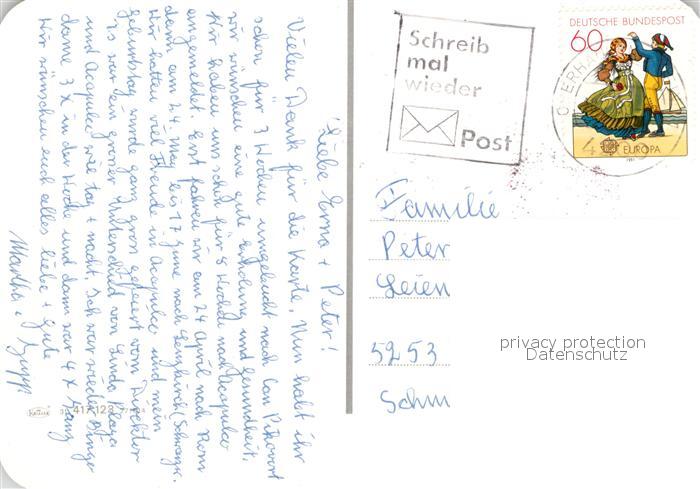 Liebe Erna + Peter!
Vielen Dank für die Karte. Nun habt ihr
schon für 3 Wochen umgebucht nach Can Picafort
wir wünschen eine gute Erholung und Gesundheit.
Wir haben uns schon für 5 Wochen nach Acapulco
angemeldet. Erst fahren wir am 24 April nach Rom
dann am 24. Mai bis 17 Juni nach Lenzkirch (Schwarzw.
Wir hatten viel Freude in Acapulco und mein
Geburtstag wurde ganz gross gefeiert vom Direktor
Es war ein grosser Unterschied von Linda Plaza
und Acapulco wie tag + nacht. Ich war wieder
dame 3 X in der Woche und dann war 4 X Tanz
Wir wünschen euch alles liebe + gute
Martha +
Schreib
mal
wieder
Post
DEUTSCHE BUNDESPOST
60
EUROPA
1981
Familie
Peter
Leien
5253
Schm
privacy protection
Datenschutz
Krüger
417123